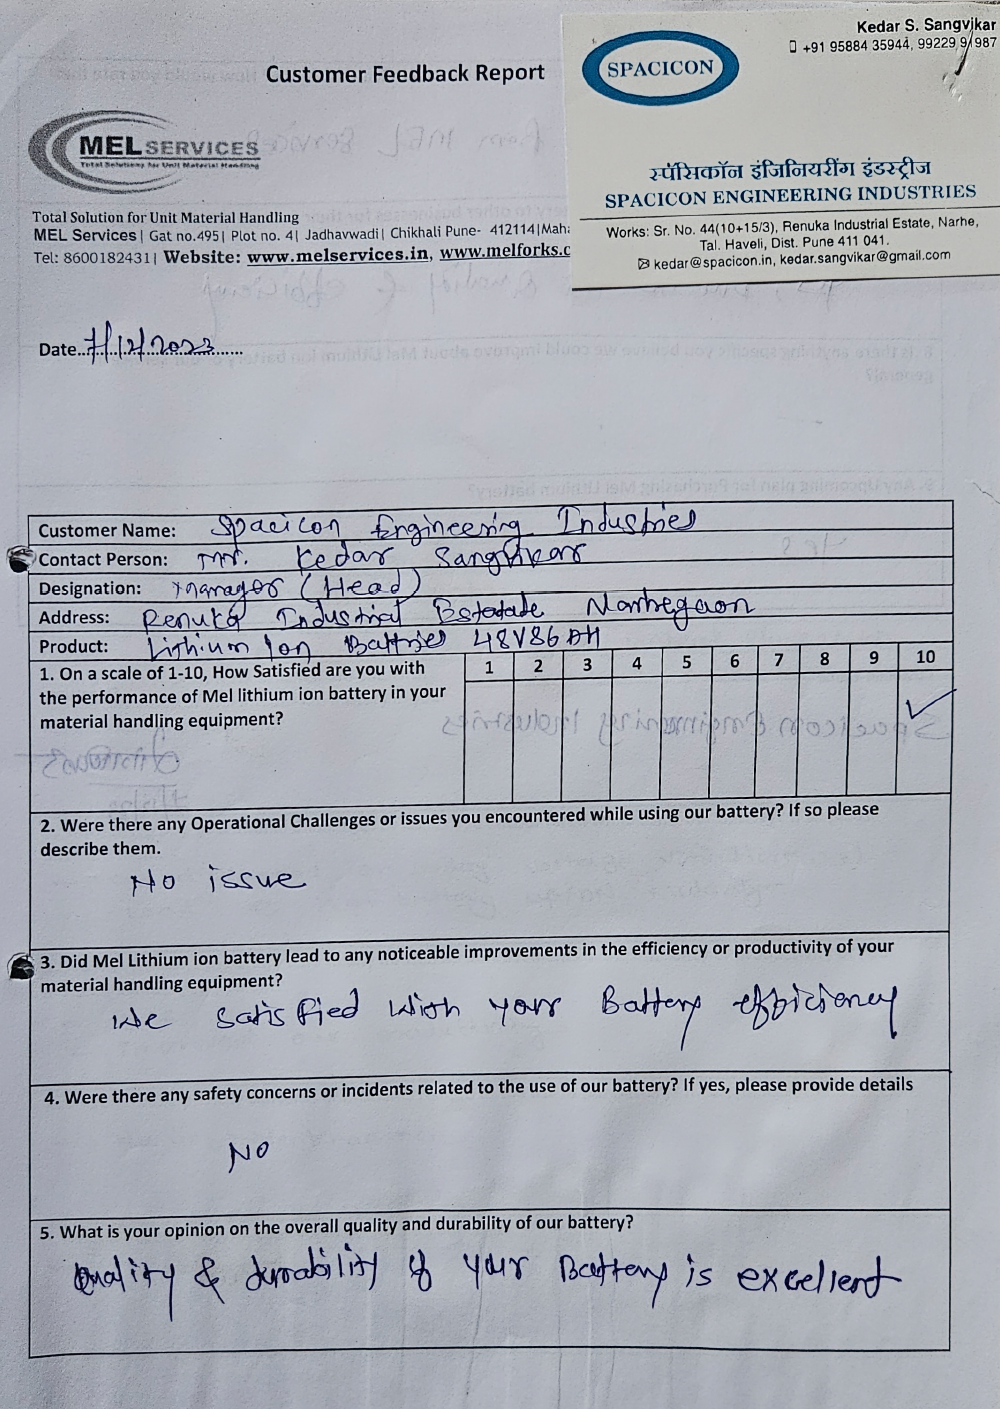 Customer Feedback Report
Kedar S. Sangvikar
+91 95884 35944, 99229 91987
SPACICON
स्पॅसिकॉन इंजिनियरींग इंडस्ट्रीज
SPACICON ENGINEERING INDUSTRIES
Works: Sr. No. 44(10+15/3), Renuka Industrial Estate, Narhe,
Tal. Haveli, Dist. Pune 411 041.
kedar@spacicon.in, kedar.sangvikar@gmail.com
MEL SERVICES
Total Solutions for Unit Material Handling
Total Solution for Unit Material Handling
MEL Services| Gat no.495| Plot no. 4| Jadhavwadi| Chikhali Pune- 412114|Maha
Tel: 8600182431| Website: www.melservices.in, www.melforks.c
Date 7/12/2023
Customer Name: Spacicon Engineering Industries
Contact Person: Mr. Kedar Sangvikar
Designation: Manager (Head)
Address: Renuka Industrial Estatate Narhegaon
Product: Lithium Ion Battries 48V86AH
1. On a scale of 1-10, How Satisfied are you with 1 2 3 4 5 6 7 8 9 10
the performance of Mel lithium ion battery in your
material handling equipment? ✓
2. Were there any Operational Challenges or issues you encountered while using our battery? If so please
describe them.
No issue
3. Did Mel Lithium ion battery lead to any noticeable improvements in the efficiency or productivity of your
material handling equipment?
We satisfied with your Battery efficiency
4. Were there any safety concerns or incidents related to the use of our battery? If yes, please provide details
No
5. What is your opinion on the overall quality and durability of our battery?
Quality & durability of your Battery is excellent